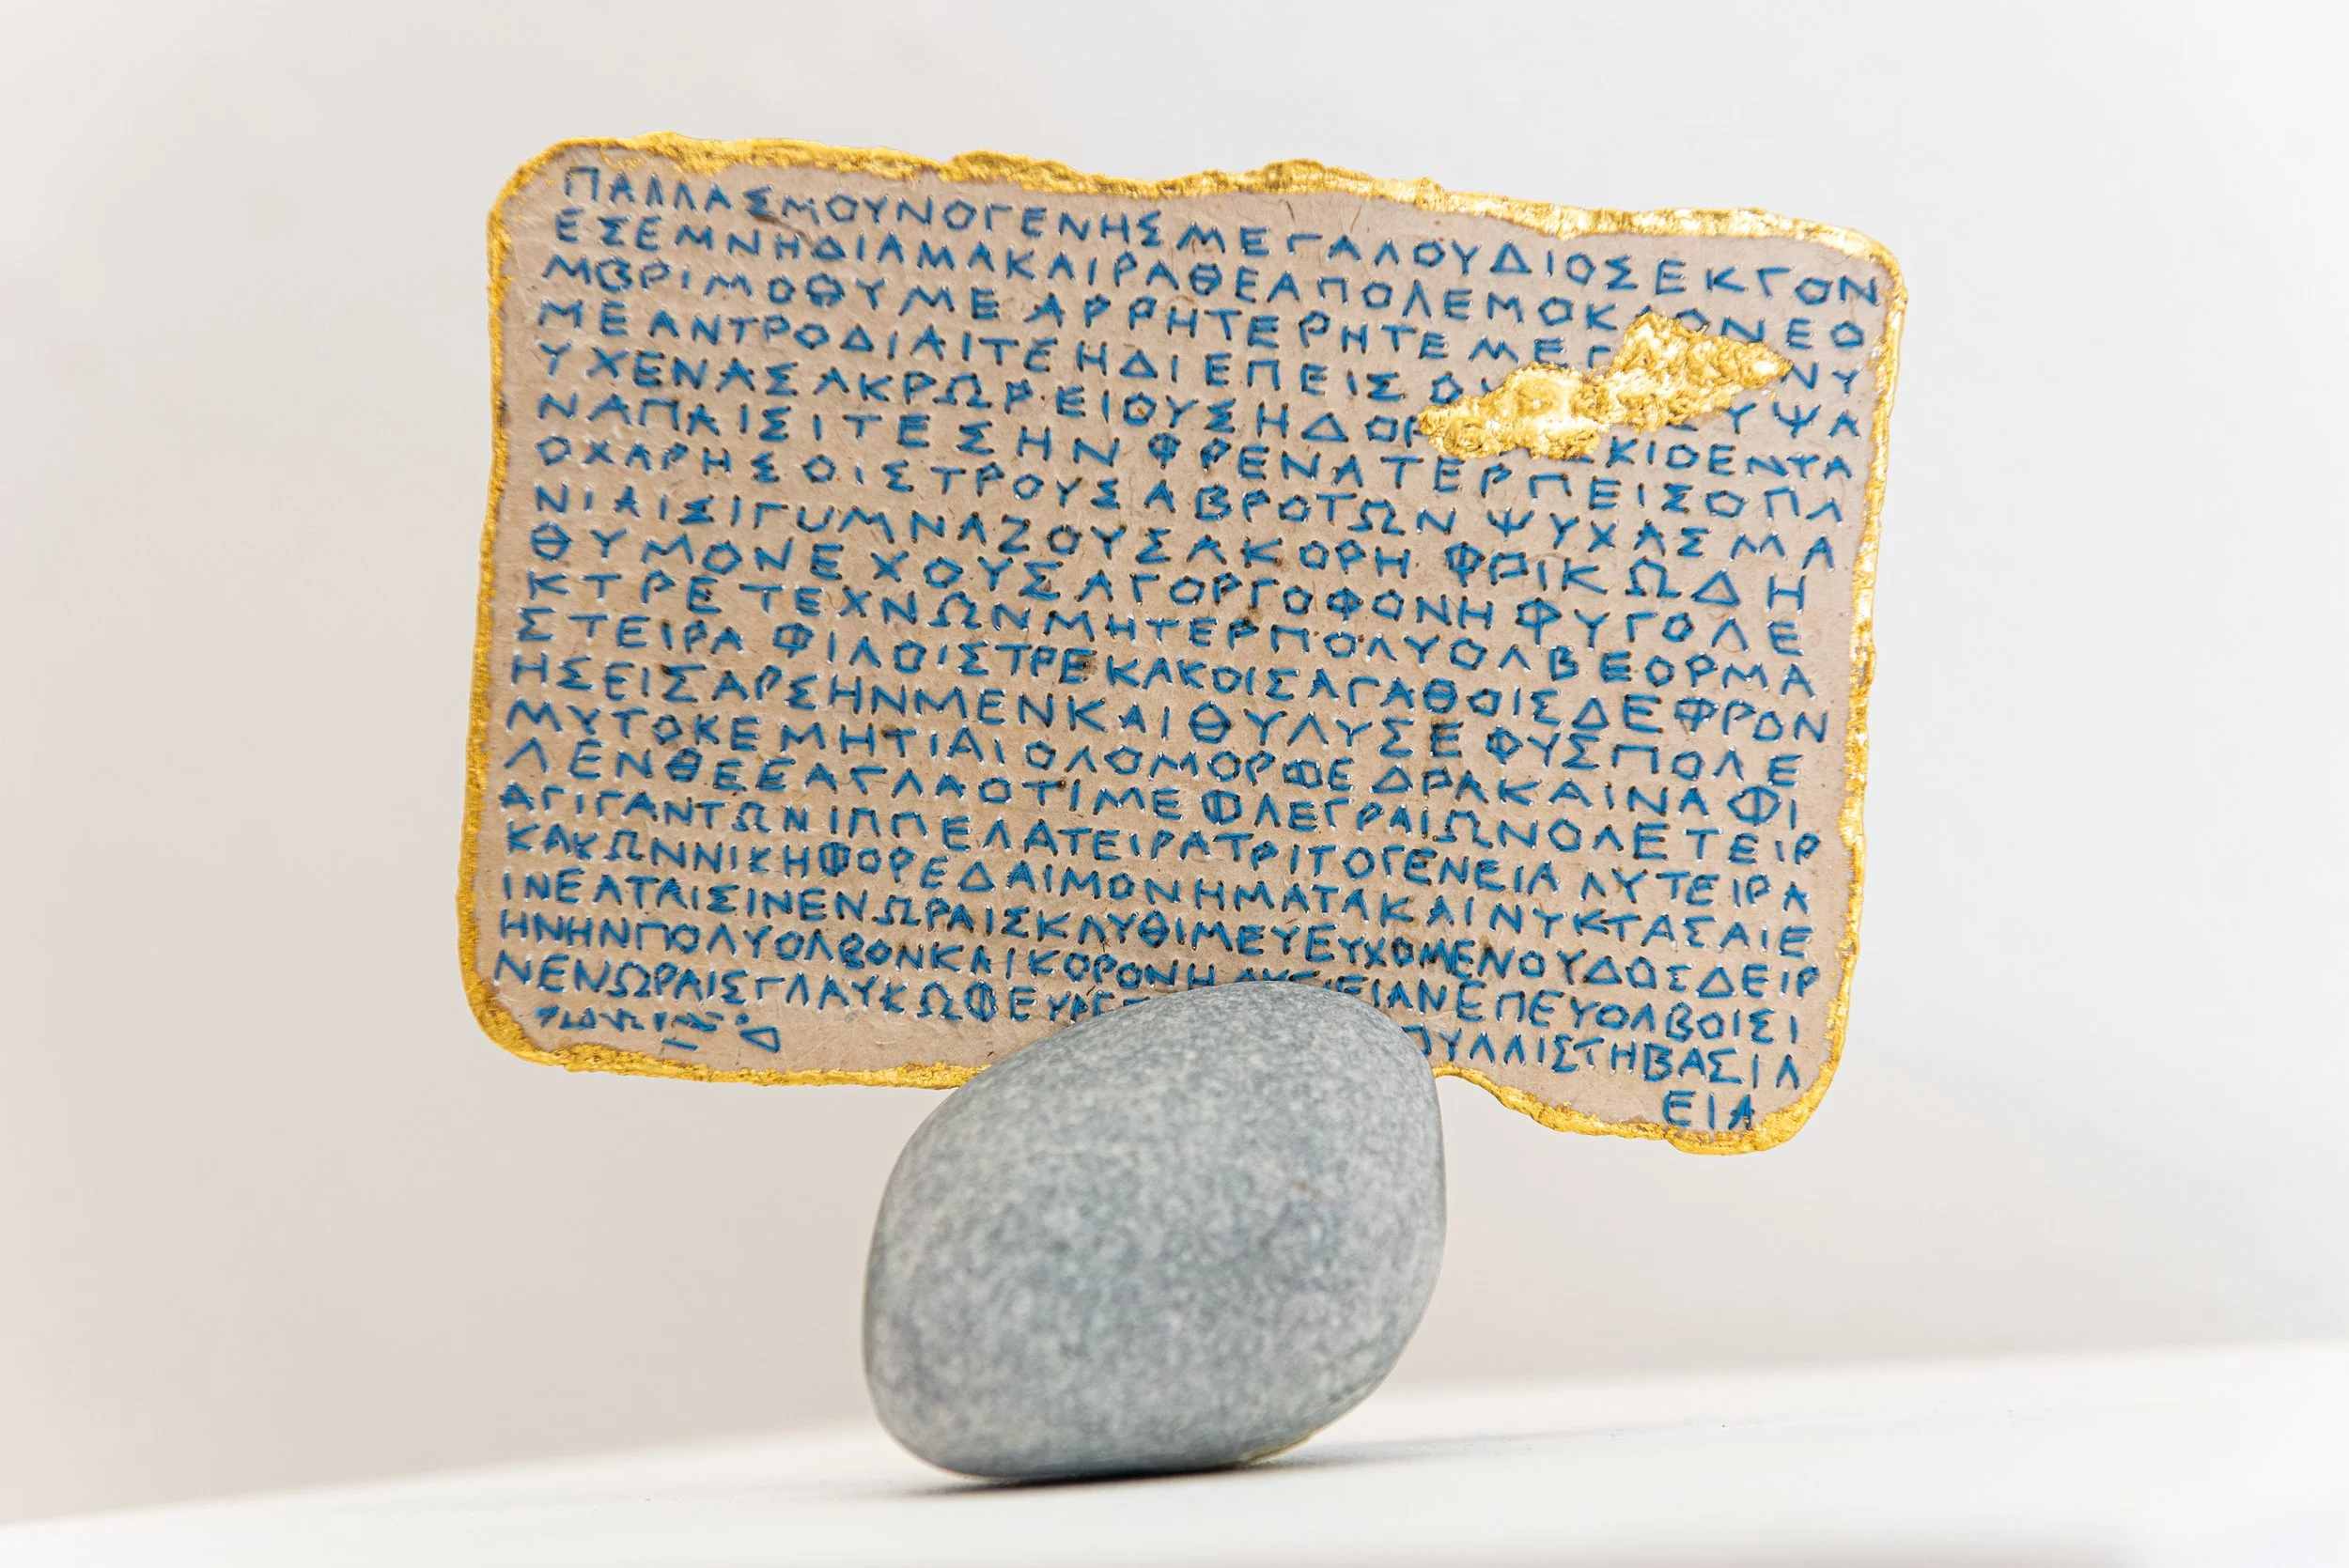 ΠΑΛΛΑΣΜΟΥΝΟΓΕΝΗΣΜΕΓΑΛΟΥΔΙΟΣΕΚΓΟΝ
ΕΣΕΜΝΗΔΙΑΜΑΚΑΙΡΑΘΕΑΠΟΛΕΜΟΚΛΟΝΕΟ
ΜΒΡΙΜΟΘΥΜΕΑΡΡΗΤΕΡΗΤΕΜΕΓ ΝΥ
ΜΕΑΝΤΡΟΔΙΑΙΤΕΗΔΙΕΠΕΙΣΟΥ ΥΨΑ
ΥΧΕΝΑΣΑΚΡΩΡΕΙΟΥΣΗΔΟΡ ΚΙΟΕΝΤΑ
ΝΑΠΑΙΣΙΤΕΣΗΝΦΡΕΝΑΤΕΡΠΕΙΣΟΠΛ
ΟΧΑΡΗΣΟΙΣΤΡΟΥΣΑΒΡΟΤΩΝΨΥΧΑΣΜΑ
ΝΙΑΙΣΙΓΥΜΝΑΖΟΥΣΑΚΟΡΗΦΡΙΚΩΔΗ
ΘΥΜΟΝΕΧΟΥΣΑΓΟΡΓΟΦΟΝΗΦΥΓΟΛΕ
ΚΤΡΕΤΕΧΝΩΝΜΗΤΕΡΠΟΛΥΟΛΒΕΟΡΜΑ
ΣΤΕΙΡΑΦΙΛΟΙΣΤΡΕΚΑΚΟΙΣΑΓΑΘΟΙΣΔΕΦΡΟΝ
ΗΣΕΙΣΑΡΣΗΝΜΕΝΚΑΙΘΥΛΥΣΕΦΥΣΠΟΛΕ
ΜΥΤΟΚΕΜΗΤΙΑΙΟΛΟΜΟΡΦΕΔΡΑΚΑΙΝΑΦΙ
ΛΕΝΘΕΕΑΓΛΑΟΤΙΜΕΦΛΕΓΡΑΙΩΝΟΛΕΤΕΙΡ
ΑΓΙΓΑΝΤΩΝΙΠΠΕΛΑΤΕΙΡΑΤΡΙΤΟΓΕΝΕΙΑΛΥΤΕΙΡΑ
ΚΑΚΩΝΝΙΚΗΦΟΡΕΔΑΙΜΟΝΗΜΑΤΑΚΑΙΝΥΚΤΑΣΑΙΕ
ΙΝΕΑΤΑΙΣΙΝΕΝΩΡΑΙΣΚΛΥΘΙΜΕΥΕΥΧΟΜΕΝΟΥΔΟΣΔΕΙΡ
ΗΝΗΝΠΟΛΥΟΛΒΟΝΚΑΙΚΟΡΟΝΗ ΕΙΑΝΕΠΕΥΟΛΒΟΙΣΙ
ΝΕΝΩΡΑΙΣΓΛΑΥΚΩΦΕΥΡΕ ΟΥΛΛΙΣΤΗΒΑΣΙΛ
ΕΙΑ